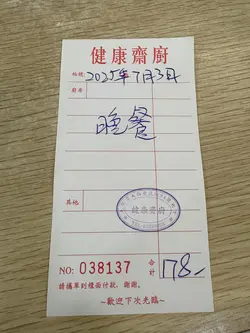 健康齋廚
2025年7月3日
晚餐
其他
健康齋廚
NO: 038137
合計
178.-
請攜單到櫃面付款，謝謝。
~歡迎下次光臨~